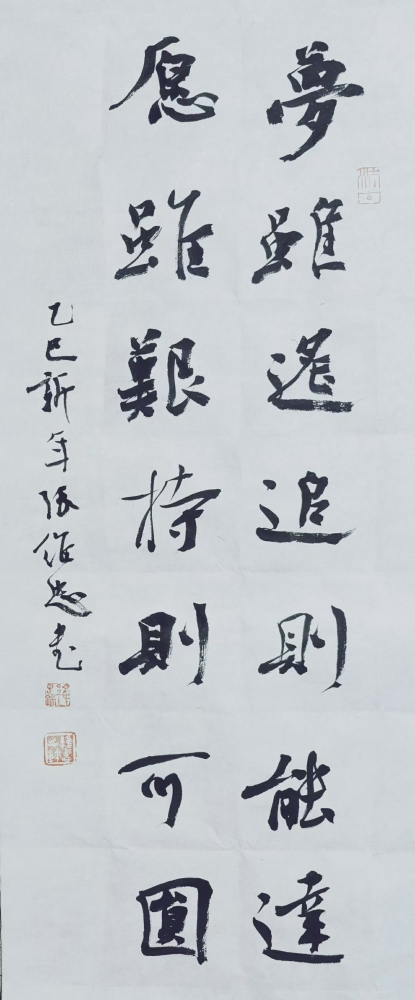 夢雖遙追則能達
愿雖艱持則可圓
乙巳新年張維忠書